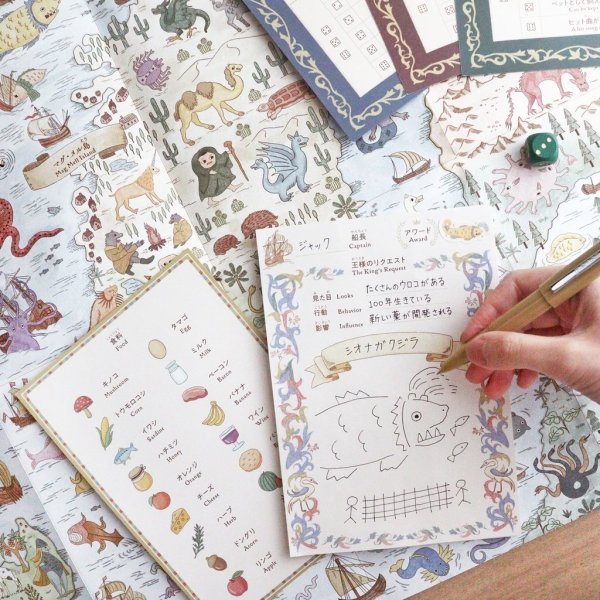 ペットとして飼え
Can be kept
ヒット曲が
A hit song
マグ・メル島
Mag Mell Island
ジャック
せんちょう
船長
Captain
アワード
Award
王様のリクエスト
The King's Request
見た目 Looks たくさんのウロコがある
行動 Behavior 100年生きている
影響 Influence 新しい薬が開発される
シオナガクジラ
食料
Food
タマゴ
Egg
キノコ
Mushroom
ミルク
Milk
トウモロコシ
Corn
ベーコン
Bacon
イワシ
Sardine
バナナ
Banana
ハチミツ
Honey
ワイン
Wine
オレンジ
Orange
チーズ
Cheese
ハーブ
Herb
ドングリ
Acorn
リンゴ
Apple